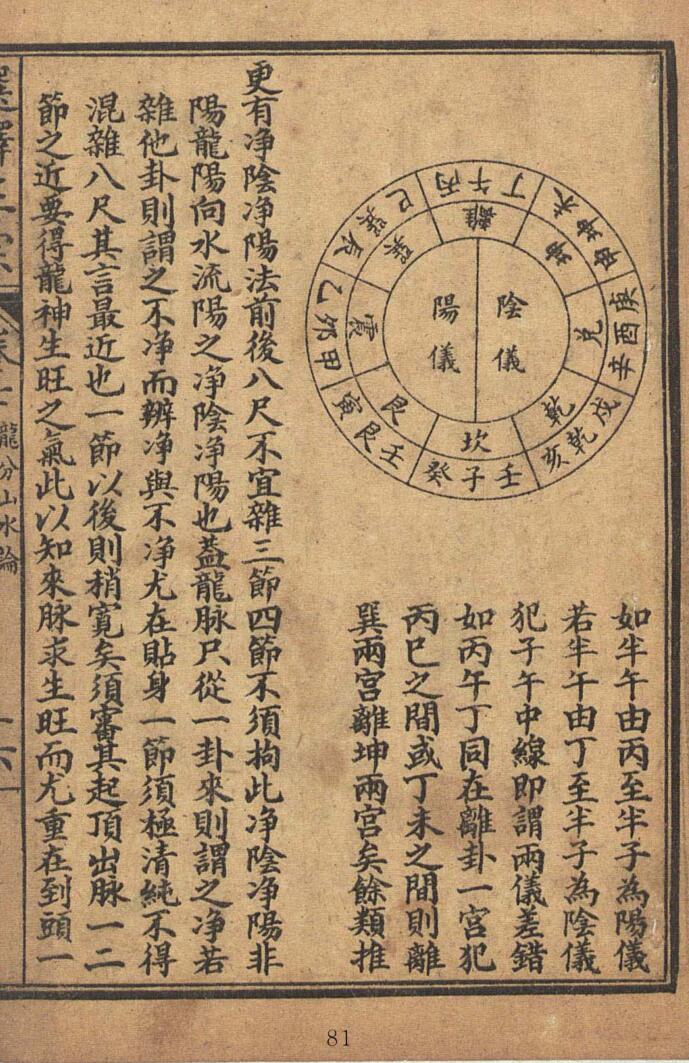 陽儀
陰儀
離
坤
兌
乾
坎
艮
震
巽
丙午丁
未坤申
庚酉辛
戌乾亥
壬子癸
壬艮寅
甲卯乙
辰巽巳
如半午由丙至半子為陽儀
若半午由丁至半子為陰儀
犯子午中線即謂兩儀差錯
如丙午丁同在離卦一宮犯
丙巳之間或丁未之間則離
巽兩宮離坤兩宮矣餘類推
更有净陰净陽法前後八尺不宜雜三節四節不須拘此净陰净陽非
陽龍陽向水流陽之净陰净陽也蓋龍脉只從一卦來則謂之净若
雜他卦則謂之不净而辨净與不净尤在貼身一節須極清純不得
混雜八尺其言最近也一節以後則稍寬矣須審其起頂出脉一二
節之近要得龍神生旺之氣此以知來脉求生旺而尤重在到頭一
龍分山水論
81